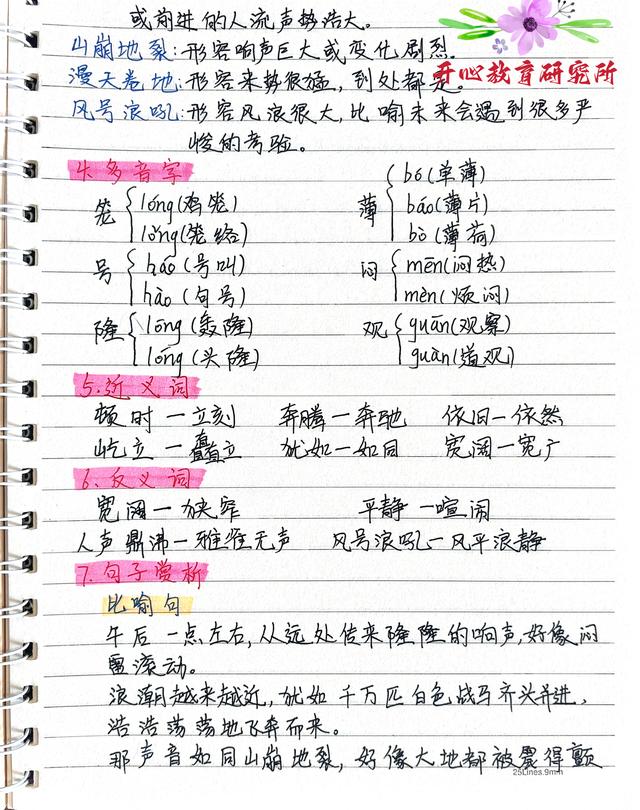 或前进的人流声势浩大。
山崩地裂:形容响声巨大或变化剧烈。
漫天卷地:形容来势很猛,到处都是。
开心教育研究所
风号浪吼:形容风浪很大,比喻未来会遇到很多严
峻的考验。
4.多音字
笼 lóng(鸡笼)
lǒng(笼络)
薄 bó(单薄)
báo(薄片)
bò(薄荷)
号 háo(号叫)
hào(句号)
闷 mēn(闷热)
mèn(烦闷)
隆 lōng(轰隆)
lóng(兴隆)
观 guān(观察)
guàn(道观)
5.近义词
顿时—立刻 奔腾—奔驰 依旧—依然
屹立—矗立 犹如—如同 宽阔—宽广
6.反义词
宽阔—狭窄 平静—喧闹
人声鼎沸—雅雀无声 风号浪吼—风平浪静
7.句子赏析
比喻句
午后一点左右,从远处传来隆隆的响声,好像闷
雷滚动。
浪潮越来越近,犹如千万匹白色战马齐头并进,
浩浩荡荡地飞奔而来。
那声音如同山崩地裂,好像大地都被震得颤